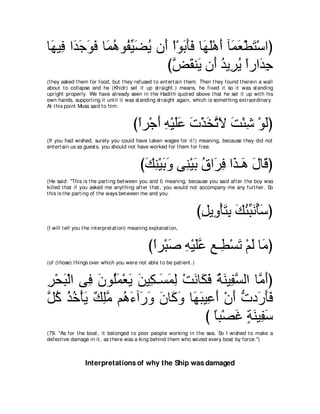 (اسْتَطْعَمَآ أَهْلَهَا فَأَبَوْاْ أَن يُضَيِّفُوهُمَا فَوَجَدَا فِيهَا
جِدَاراً يُرِيدُ أَن يَنقَضَّ)
(they asked them for food, but they refused to entertain them. Then they found therein a wall
about to collapse and he (Khidr) set it up straight.) means, he fixed it so it was standing
upright properly. We have already seen in the Hadith quoted above that he set it up with his
own hands, supporting it until it was standing straight again, which is something extraordinary.
At this point Musa said to him:
(لَوْ شِئْتَ لاَتَّخَذْتَ عَلَيْهِ أَجْراً)
(If you had wished, surely you could have taken wages for it!) meaning, because they did not
entertain us as guests, you should not have worked for them for free.
(قَالَ هَـذَا فِرَاقُ بَيْنِى وَبَيْنِكَ)
(He said: "This is the parting between you and I) meaning, because you said after the boy was
killed that if you asked me anything after that, you would not accompany me any further. So
this is the parting of the ways between me and you.
(سَأُنَبِّئُكَ بِتَأْوِيلِ)
(I will tell you the interpretation) meaning explanation,
(مَا لَمْ تَسْطِـع عَّلَيْهِ صَبْراً)
(of (those) things over which you were not able to be patient.)
(أَمَّا السَّفِينَةُ فَكَانَتْ لِمَسَـكِينَ يَعْمَلُونَ فِى الْبَحْرِ
فَأَرَدتُّ أَنْ أَعِيبَهَا وَكَانَ وَرَآءَهُم مَّلِكٌ يَأْخُذُ كُلَّ
سَفِينَةٍ غَصْباً )
(79. "As for the boat, it belonged to poor people working in the sea. So I wished to make a
defective damage in it, as there was a king behind them who seized every boat by force.")
Interpretations of why the Ship was damaged